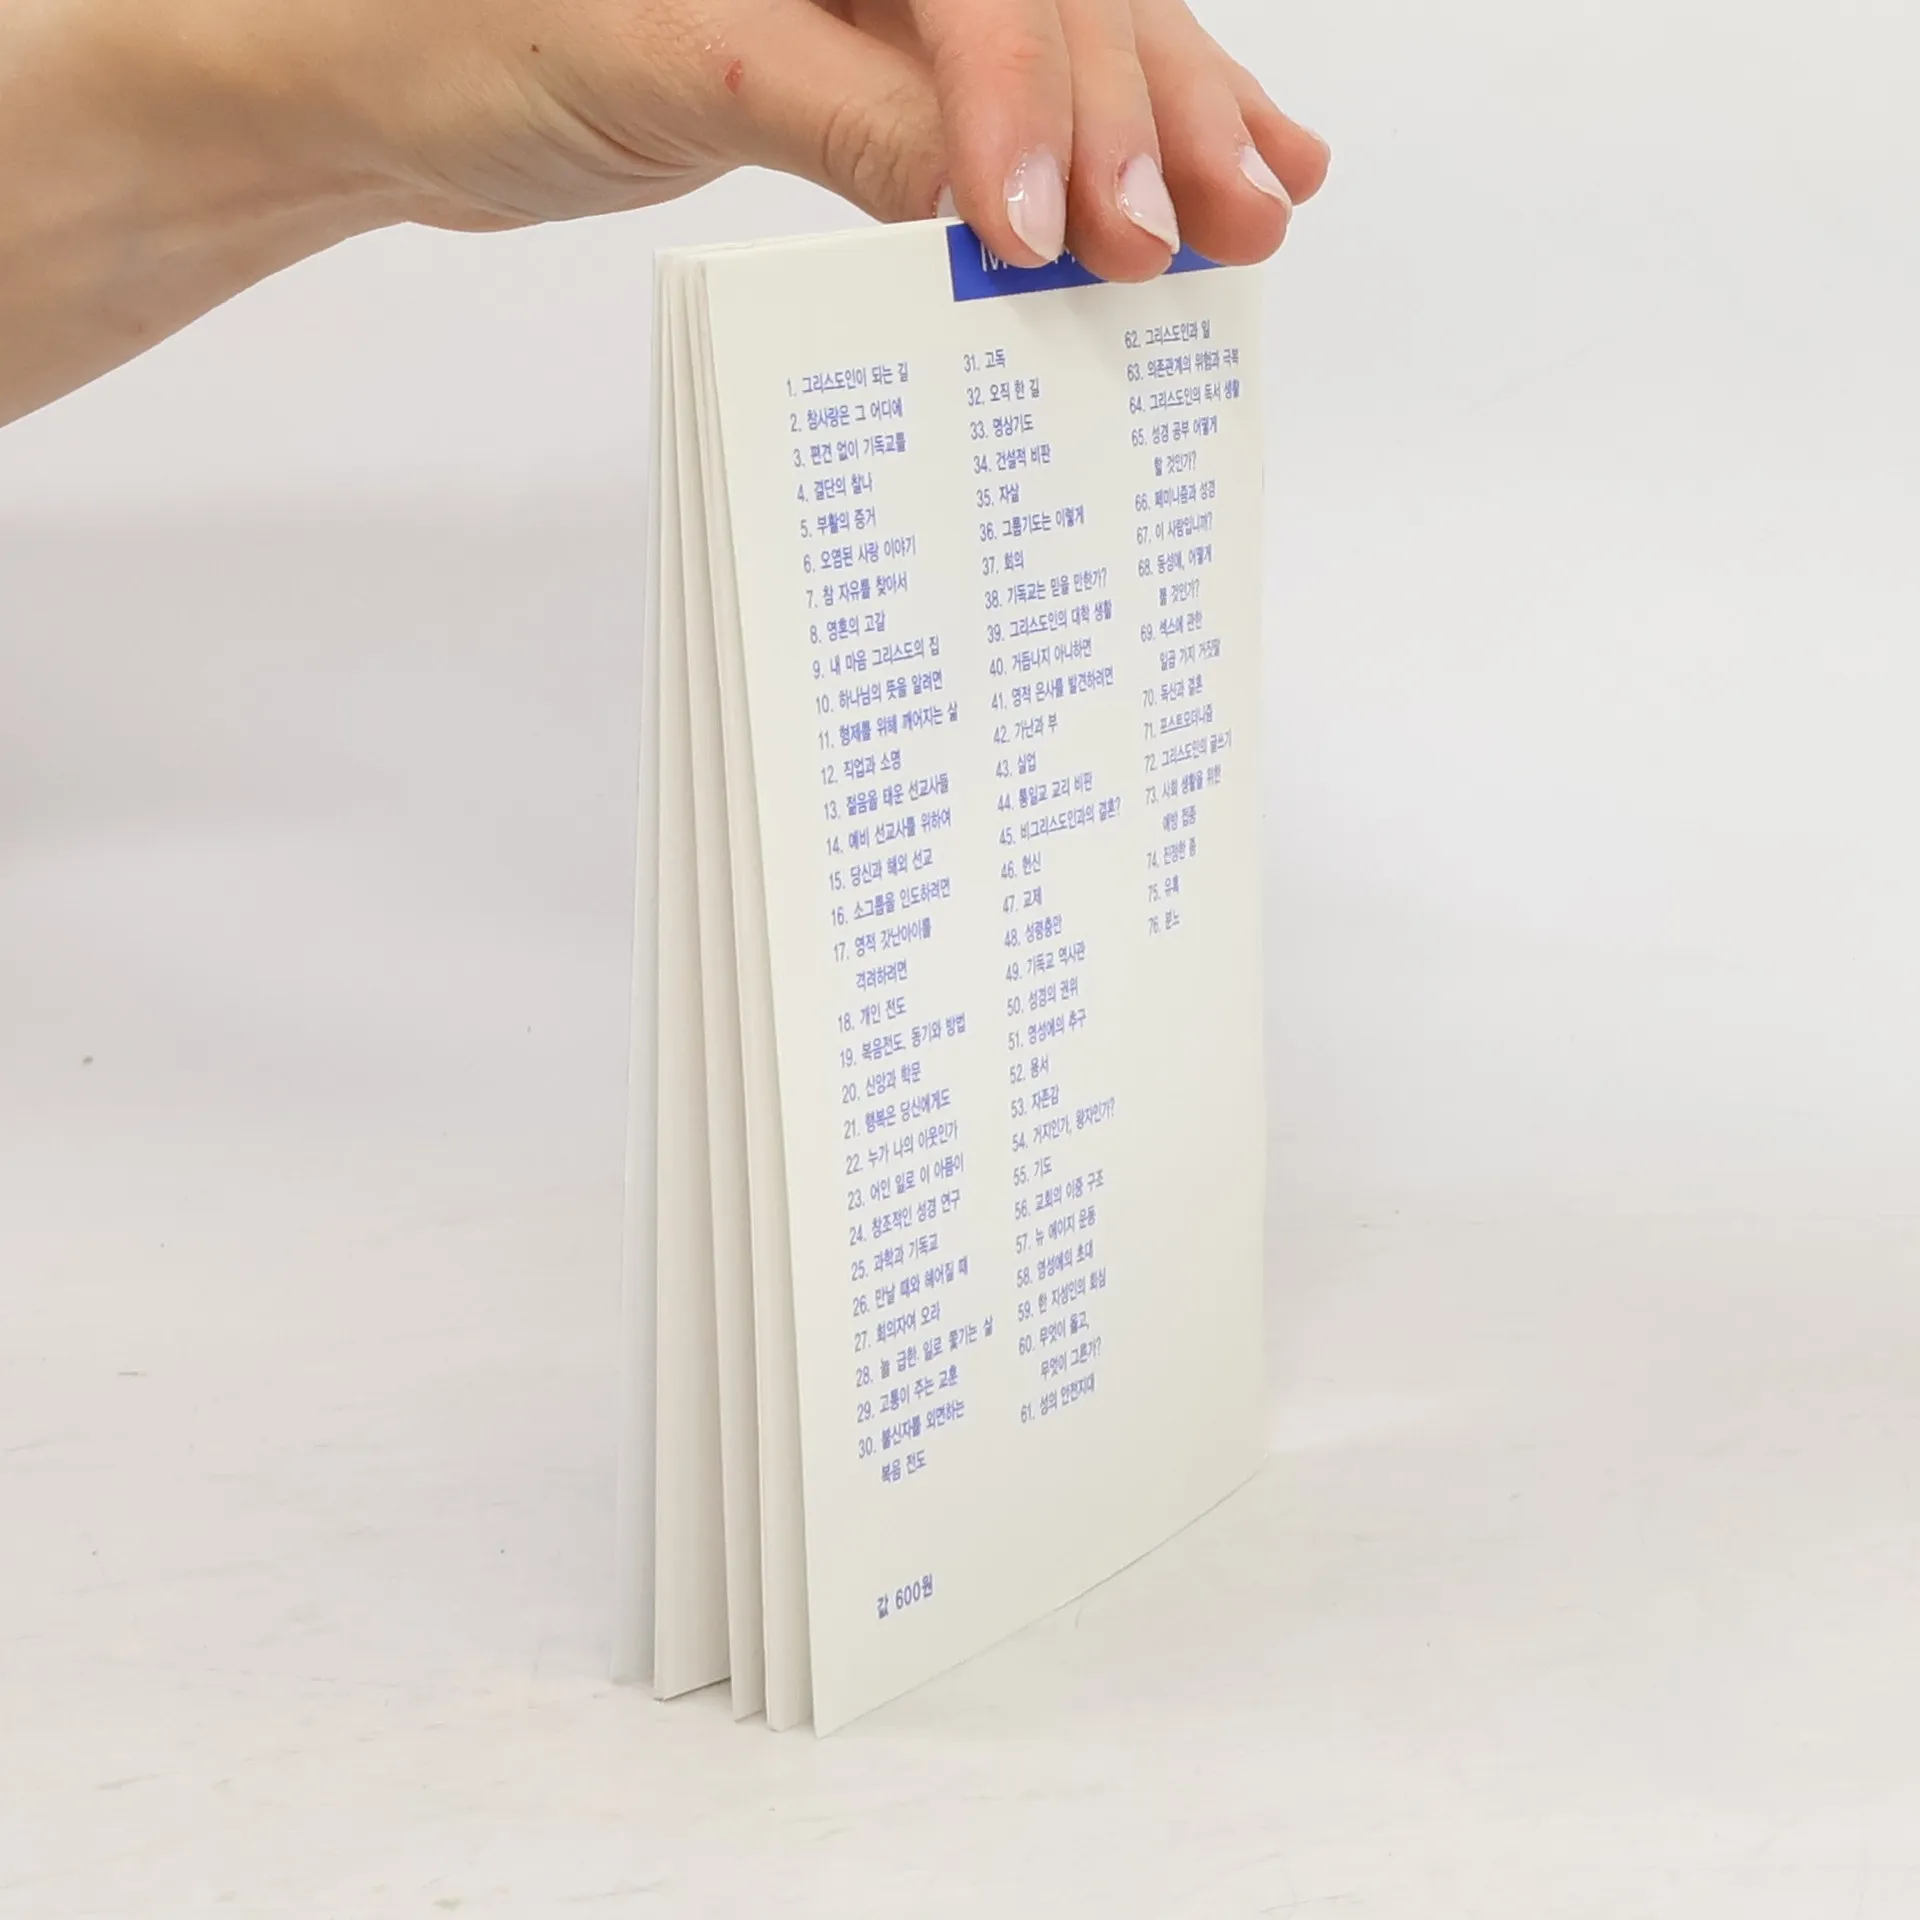 1. 그리스도인이 되는 길
2. 참사랑은 그 어디에
3. 편견 없이 기독교를
4. 결단의 찰나
5. 부활의 증거
6. 오염된 사랑 이야기
7. 참 자유를 찾아서
8. 영혼의 고갈
9. 내 마음 그리스도의 집
10. 하나님의 뜻을 알려면
11. 형제를 위해 깨어지는 삶
12. 직업과 소명
13. 젊음을 태운 선교사들
14. 예비 선교사를 위하여
15. 당신과 해외 선교
16. 소그룹을 인도하려면
17. 영적 갓난아이를
격려하려면
18. 개인 전도
19. 복음전도, 동기와 방법
20. 신앙과 학문
21. 행복은 당신에게도
22. 누가 나의 이웃인가
23. 어인 일로 이 아픔이
24. 창조적인 성경 연구
25. 과학과 기독교
26. 만날 때와 헤어질 때
27. 회의자여 오라
28. 늘 급한 일로 쫓기는 삶
29. 고통이 주는 교훈
30. 불신자를 외면하는
복음 전도
31. 고독
32. 오직 한 길
33. 명상기도
34. 건설적 비판
35. 자살
36. 그룹기도는 이렇게
37. 회의
38. 기독교는 믿을 만한가?
39. 그리스도인의 대학 생활
40. 거듭나지 아니하면
41. 영적 은사를 발견하려면
42. 가난과 부
43. 실업
44. 통일교 교리 비판
45. 비그리스도인과의 결혼?
46. 헌신
47. 교제
48. 성령충만
49. 기독교 역사관
50. 성경의 권위
51. 영성에의 추구
52. 용서
53. 자존감
54. 거지인가, 왕자인가?
55. 기도
56. 교회의 이중 구조
57. 뉴 에이지 운동
58. 영성에의 초대
59. 한 지성인의 회심
60. 무엇이 옳고,
무엇이 그른가?
61. 성의 안전지대
62. 그리스도인과 일
63. 의존관계의 위험과 극복
64. 그리스도인의 독서 생활
65. 성경 공부 어떻게
할 것인가?
66. 페미니즘과 성경
67. 이 사람입니까?
68. 동성애, 어떻게
볼 것인가?
69. 섹스에 관한
일곱 가지 거짓말
70. 독신과 결혼
71. 포스트모더니즘
72. 그리스도인의 글쓰기
73. 사회 생활을 위한
예방 접종
74. 진정한 종
75. 유혹
76. 분노
값 600원